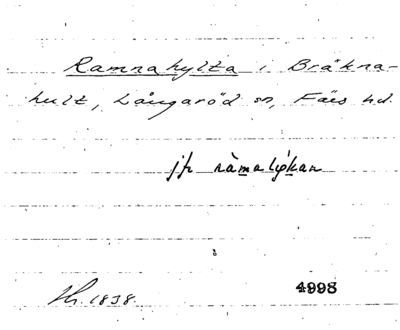 Ramnahylta i Bräkna-
hult, Långaröd sn, Färs hd.
jfr ràmalýkan
1838.
4998